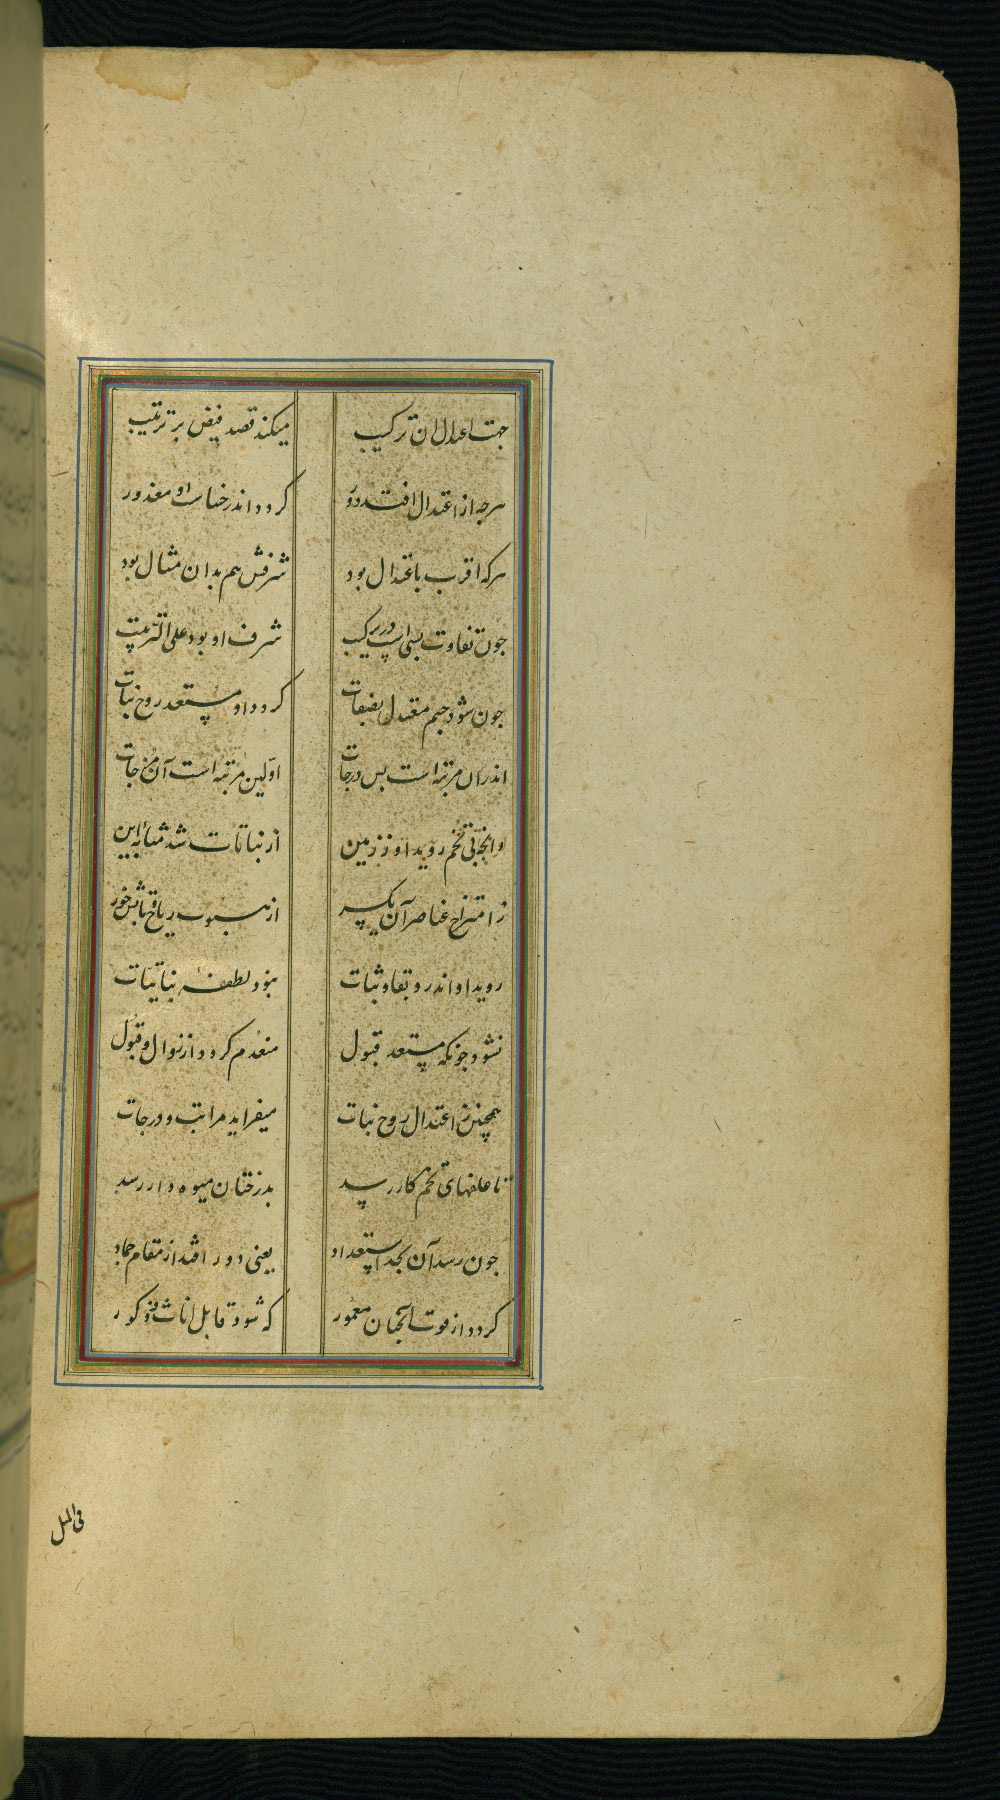 جهت اعتدال ان ترکیب میکند قصد فیض بر ترتیب
هرچه از اعتدال افتد دور کردد اندر خساست او معذور
هرکه اقرب باعتدال بود شرفش هم بدان مثال بود
جون تفاوت بسی است در ترکیب شرف او بود علی الترتیب
جون شود جسم معتدل بصفات کردد او مستعد روح نبات
اندران مرتبه است بس درجات اولین مرتبه است آن مزجات
او انچه بی تخم روید او ز زمین از نباتات شد مثابه این
ز امتزاج عناصر آن یکسر از هبوب ریاح تابش خور
روید او اندرو بقا و ثبات نبود لطفه نباتیات
نشود جونکه مستعد قبول منعدم کردد از زوال و قبول
همچنین ز اعتدال روح نبات میفزاید مراتب و درجات
تا علفهای تخم کار رسد بدرختان میوه دار رسد
جون رسد آن بحد استعداد یعنی دور افتد از مقام جماد
کردد از قوت آنجنان معمور که شود قابل اناث و ذکور
فی المثل